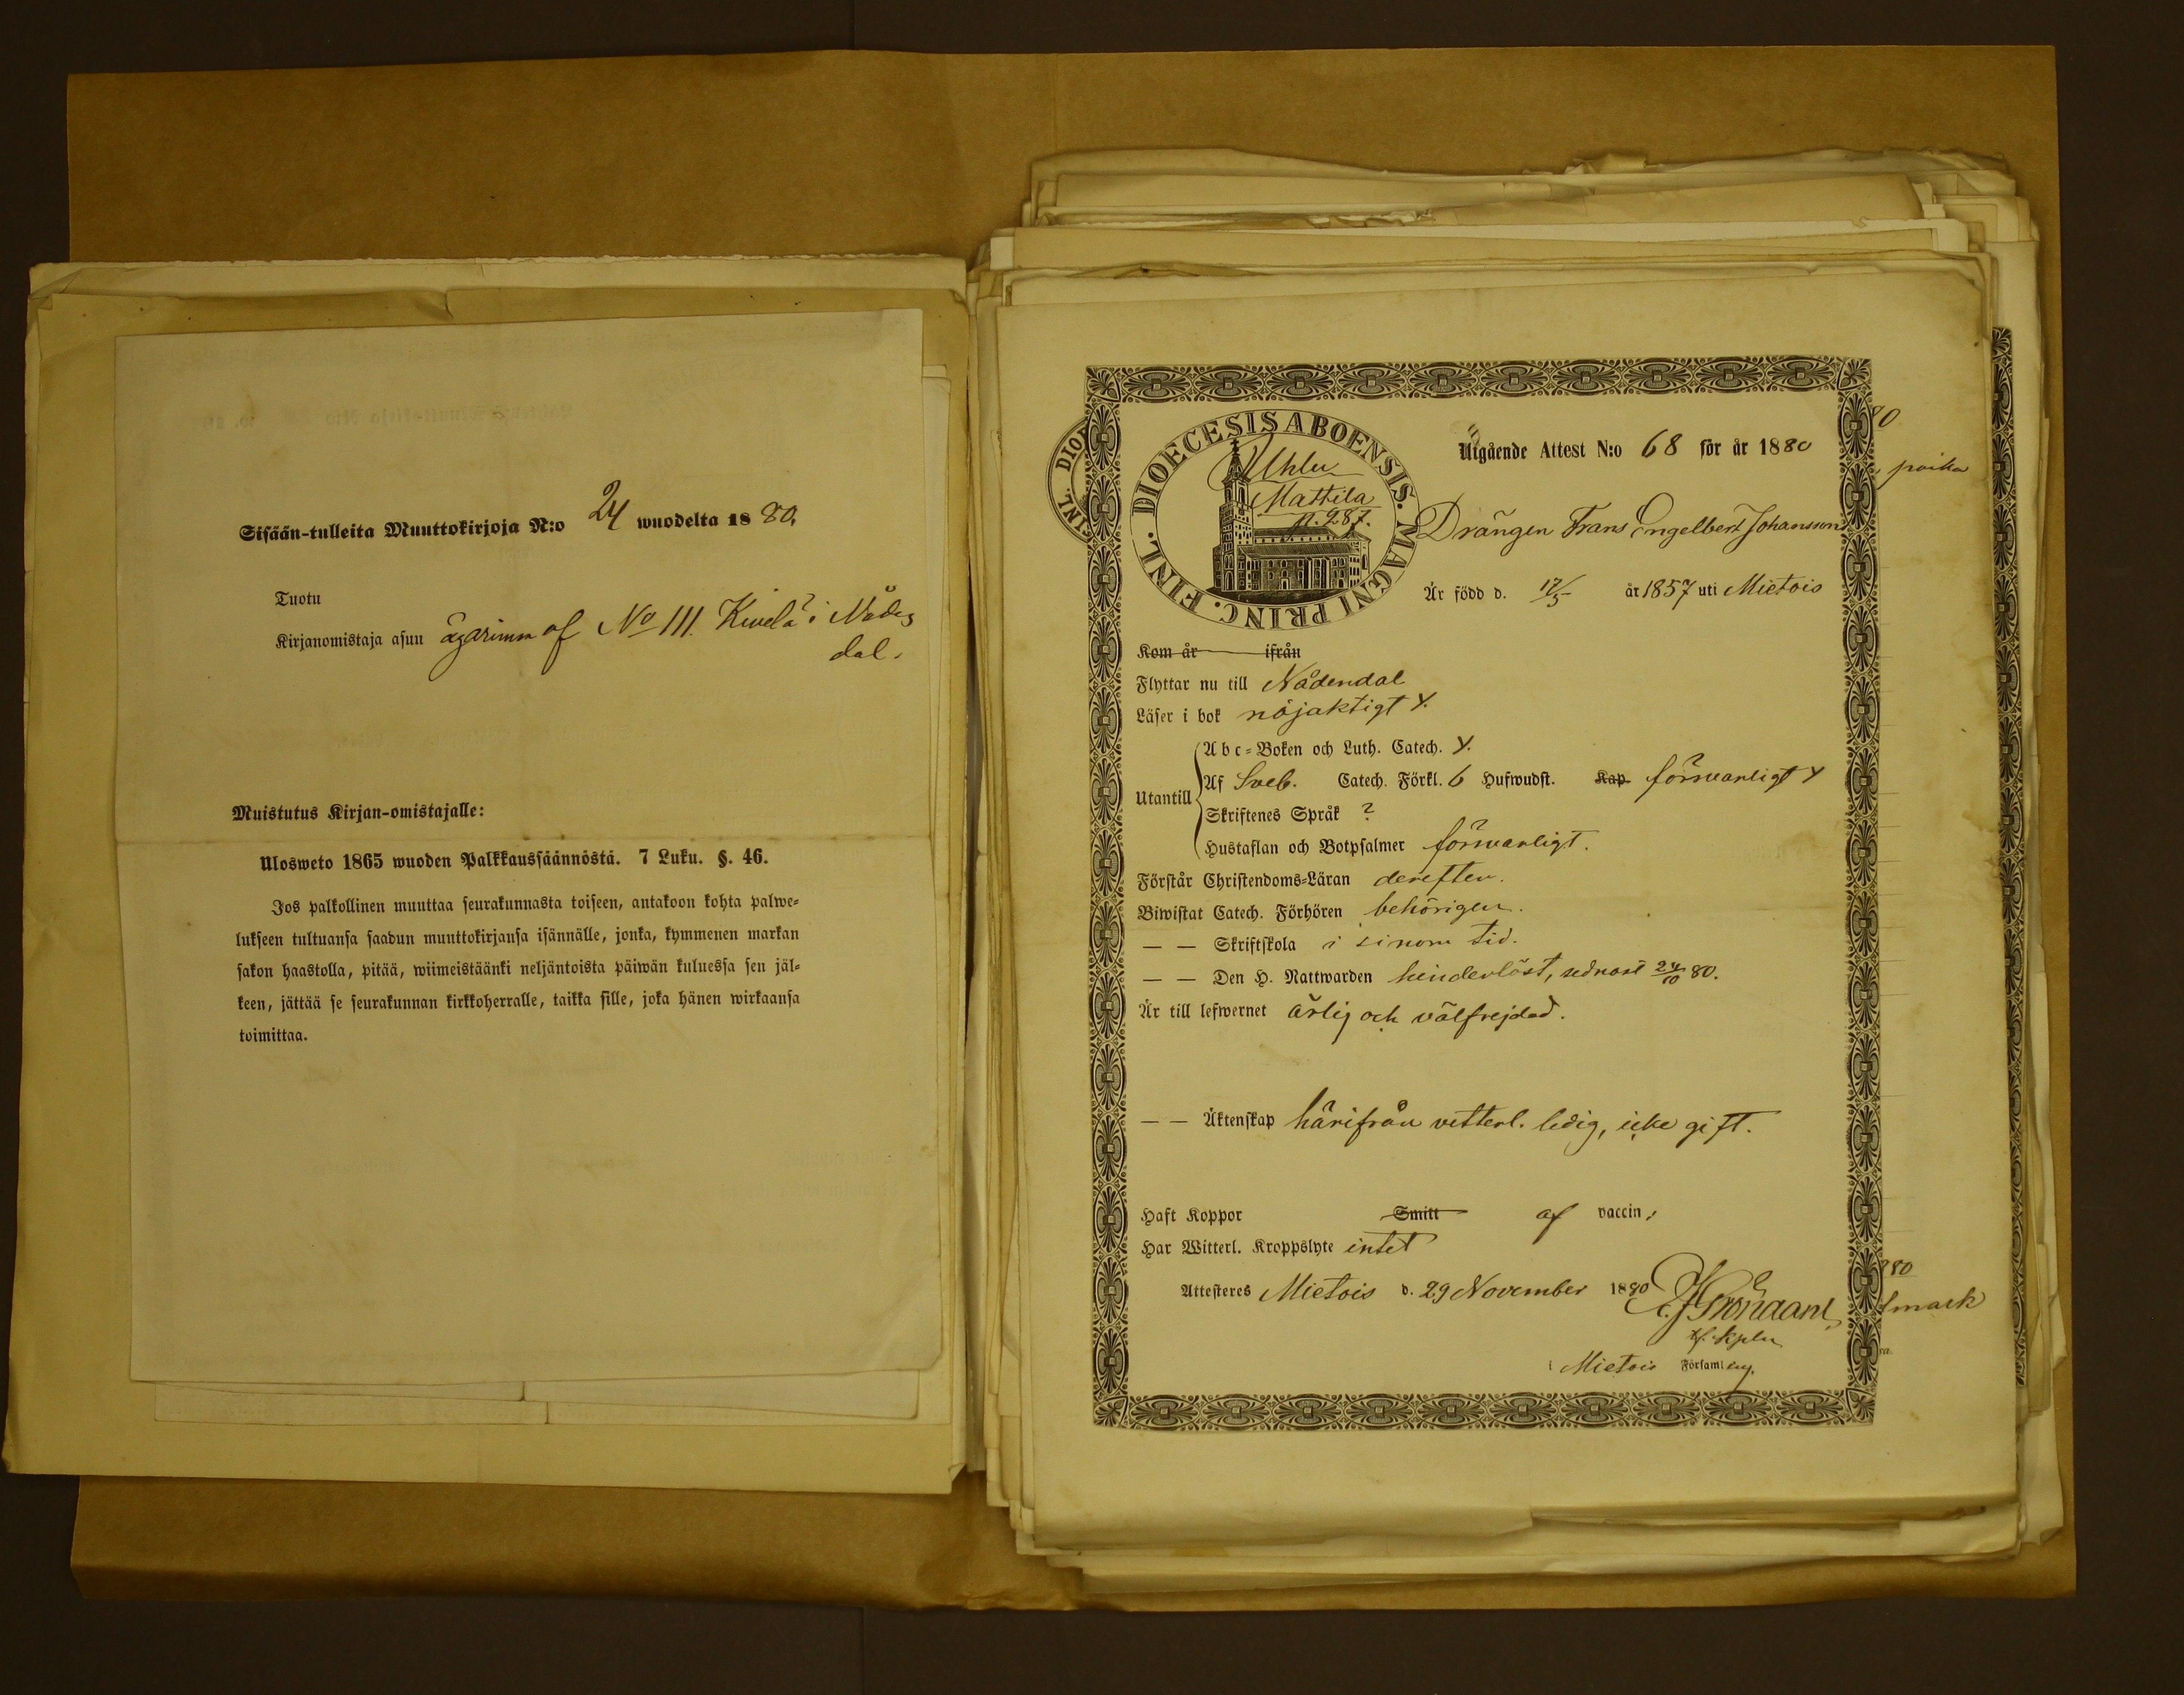 Sisään-tulleita Muuttokirjoja N:o 24 wuodelta 1880.
Tuotu
Kirjanomistaja asuu ägarinna af No 111. Kivelä i Nåden
dal.
Muistutus Kirjan-omistajalle:
Ulosweto 1865 wuoden Palkkaussäännöstä. 7 Luku. §. 46.
Jos palkollinen muuttaa seurakunnasta toiseen, antakoon kohta palwe-
lukseen tultuansa saadun muuttokirjansa isännälle, jonka, kymmenen markan
sakon haastolla, pitää, wiimeistäänki neljäntoista päiwän kuluessa sen jäl-
keen, jättää se seurakunnan kirkkoherralle, taikka sille, joka hänen wirkaansa
toimittaa.
FINL. DIOE
FINL. DIOECESIS ABOENSIS. MAGNI PRINC.
Mattila
p. 287.
Utgående Attest N:o 68 för år 1880
Drängen Frans Engelbert Johansson
Är född d. 17/5 år 1857 uti Mietois
Kom år ifrån
Flyttar nu till Nådendal
Läser i bok nöjaktigt Y.
Utantill
Abc-Boken och Luth. Catech. Y.
Af Sveb. Catech. Förkl. 6 Hufwudst. Kap. försvarligt Y
Skriftenes Språk ?
Hustaflan och Botpsalmer försvarligt.
Förstår Christendoms-Läran derefter.
Biwistat Catech. Förhören behörigen.
— — Skriftskola i sinom tid.
— — Den H. Nattwarden hinderlöst, sednast 24/10 80.
Är till lefwernet ärlig och välfrejdad.
— — Äktenskap härifrån vetterl. ledig, icke gift.
Haft Koppor Smitt af vaccin.
Har Witterl. Kroppslyte intet
Attesteres Mietois d. 29 November 1880
Mietois Församling.
poika
80